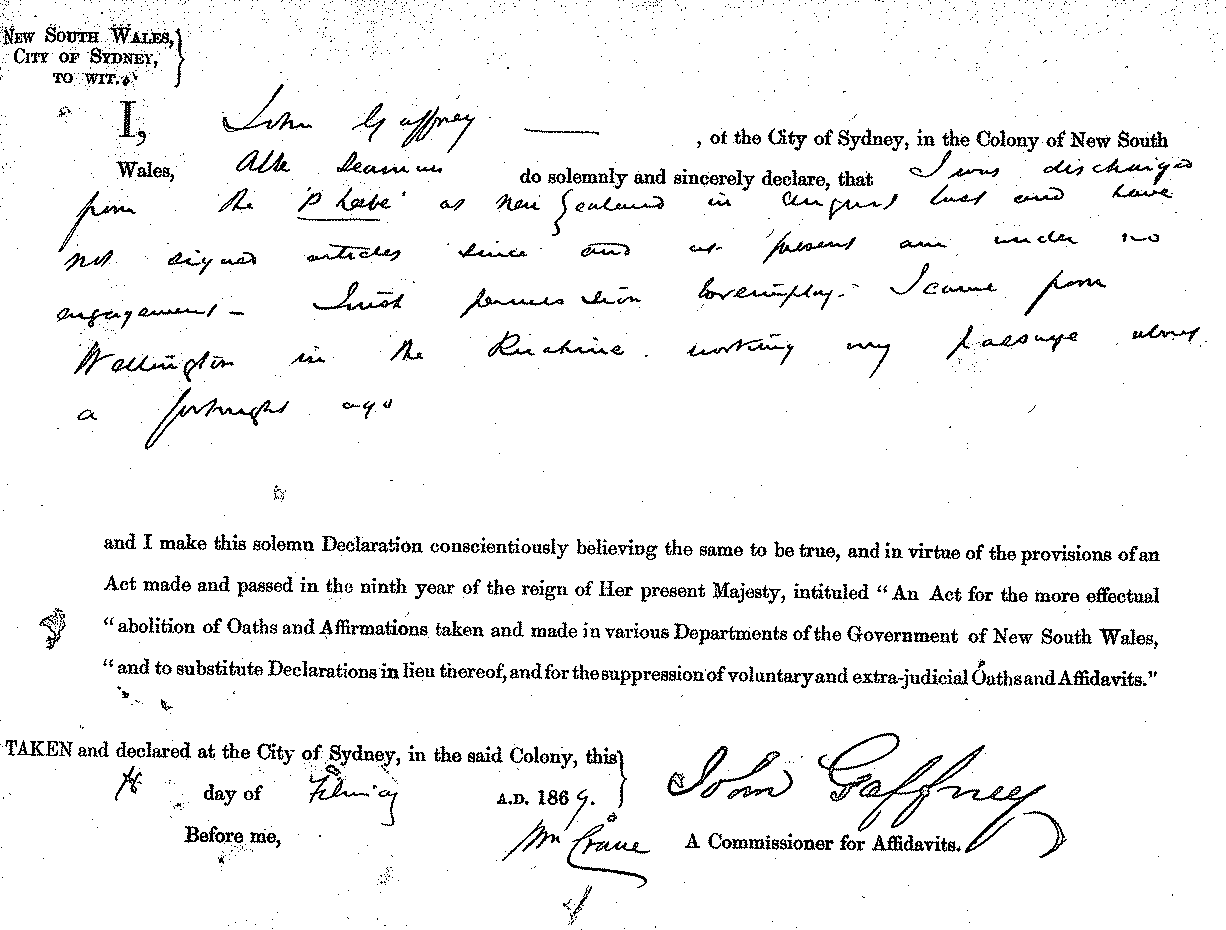 NEW SOUTH WALES,
CITY OF SYDNEY,
TO WIT.
I, John Gaffney , of the City of Sydney, in the Colony of New South
Wales, Able Seaman do solemnly and sincerely declare, that I was discharged
from the 'Phoebe' at New Zealand in August last and have
not signed articles since and at present am under no
engagement - I wish permission I came from
Wellington in the Ruahine. working my passage about
a fortnight ago
and I make this solemn Declaration conscientiously believing the same to be true, and in virtue of the provisions of an
Act made and passed in the ninth year of the reign of Her present Majesty, intituled "An Act for the more effectual
"abolition of Oaths and Affirmations taken and made in various Departments of the Government of New South Wales,
"and to substitute Declarations in lieu thereof, and for the suppression of voluntary and extra-judicial Oaths and Affidavits."
TAKEN and declared at the City of Sydney, in the said Colony, this
day of February A.D. 1869.
John Gaffney
Before me, Wm Crane A Commissioner for Affidavits.